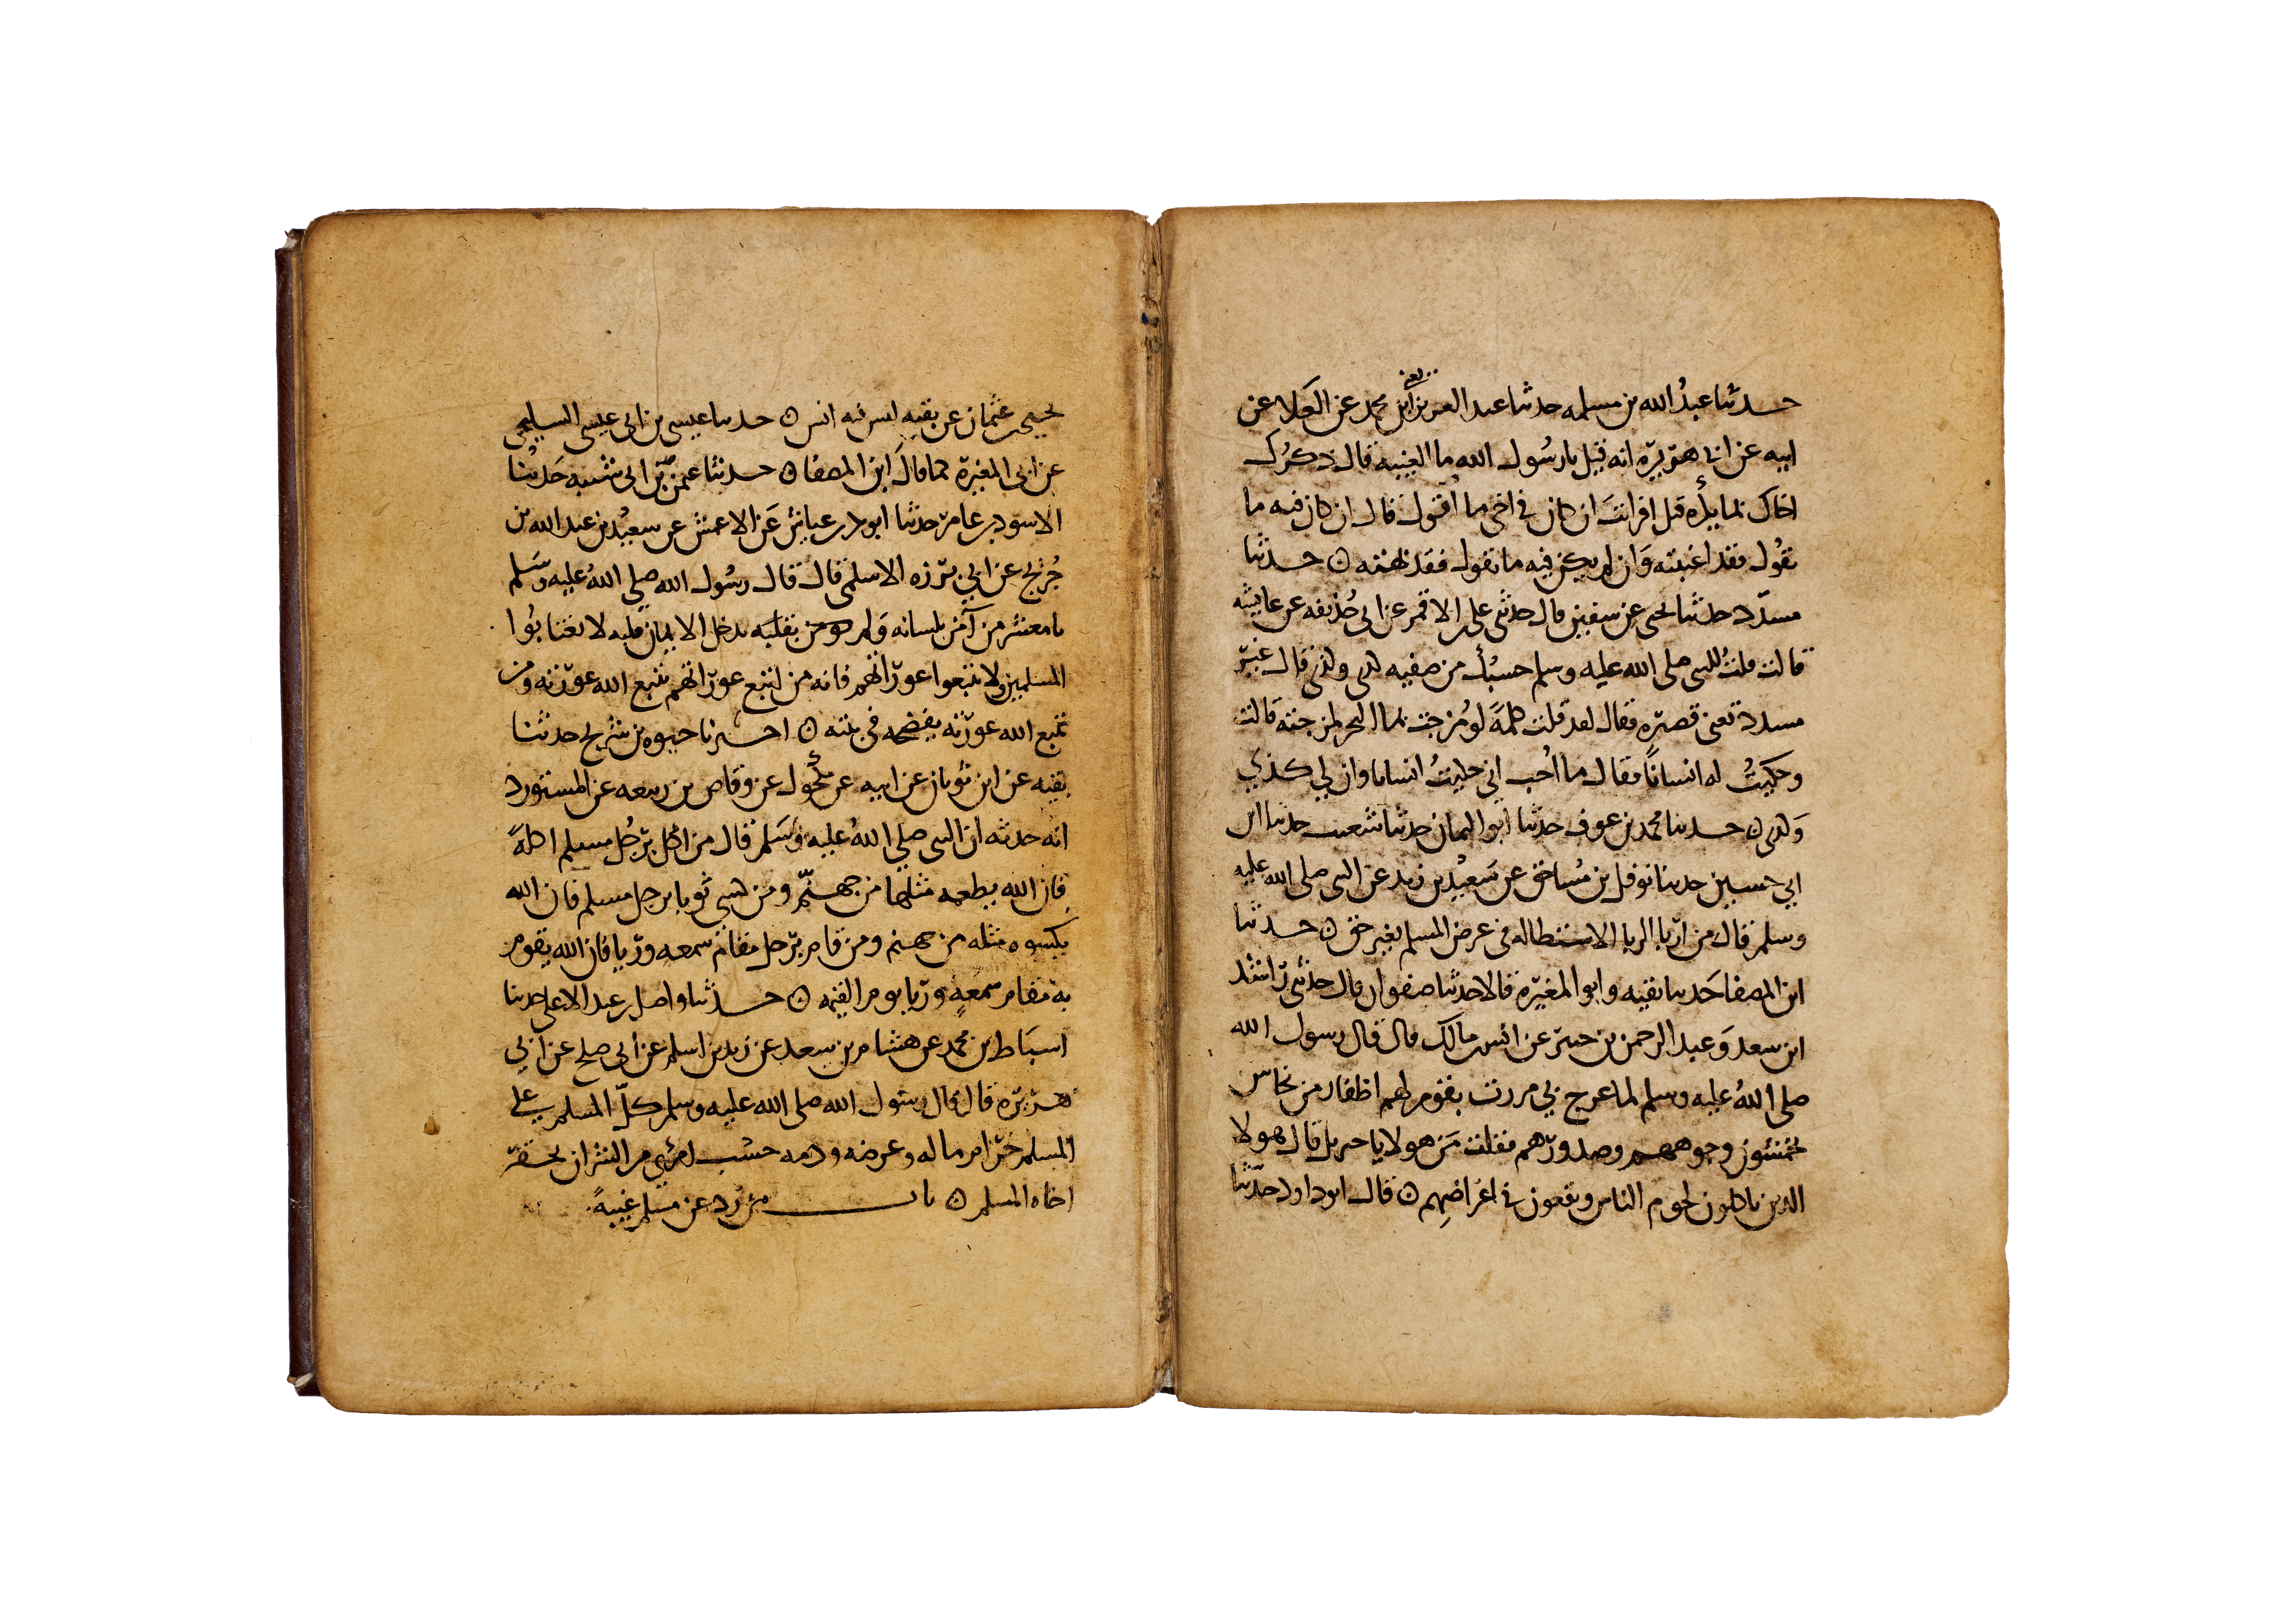 يعني
حدثنا عبدُ الله بن مسلمه حدثنا عبد العزيز ابن محمد عن العَلا عن
ابيه عن ابي هريرة انه قيل يا رسُول الله ما الغيبه قال ذكرُك
اخاك بما يكره قيل افرايتَ ان كان في اخي ما اقول قال ان كان فيه ما
تقُول فقد اغتبته وَان لم يكن فيه ما تقول فقد بهته ه حدثنا
مسدّد حدثنا يحيى عن سفين قال حدثني علي بن الاقمر عن ابي حُذيفه عن عايشه
قالت قلتُ للنبي صلى الله عليه وسلم حسبُك من صفيه كذى وكذى قال غيرُ
مسدد تعني قصيره فقال لقد قلت كلمةً لو مُزجت بماالبحر لمزجته قالت
وحكيتُ له انسانًا فقال ما اُحب اني حكيتُ انسانا وان لي كذي
وَكذى ه حدثنا محمد بن عوف حدثنا ابو اليمان حدثنا شعيب حدثنا ابن
ابي حسين حدثنا نوفل بن مُساحق عن سَعيْد بن زيد عن النبي صلى الله عليه
وسلم قال من اربا الربا الاستطاله في عرض المسلم بغير حق ه حدثنا
ابن المصفا حَدثنا بقيه وابو المغيره قالا حدثنا صفوان قال حدثني راشد
ابن سعد وَعبد الرحمن بن جبير عن انس بن مالك قال قال رسول الله
صلى اللهُ عليه وسلم لما عرج بي مررت بقوم لهم اظفار من نحاس
يخمشون وجوههم وصدورهم فقلت مَن هولا يا جبريل قال هولا
الذين ياكلون لحوم الناس ويقعون في اعراضِهم ه قال ابو داود حدّثنا
يحيى بن عثمان عن بقيه ليس فيه انس ه حدثنا عيسى بن ابي عيسى السليحي
عن ابي المغيرة كما قالَ ابن المصفا ه حدثنا عثمن بن ابي شيبه حَدثنا
الاسود بن عامر حدثنا ابو بكر بن عياش عَن الاعمش عن سعيْد بن عبد الله بن
جُريج عن ابي برزه الاسلمي قال قال رسُول الله صلى اللهُ عليه وسَلم
يا معشر من آمن بلسانه وَلم يدخل الايمان قلبه لا تغتابُوا
المسلمين ولا تتبعوا عورَاتهم فانه من اتبع عورَاتهم يتبع الله عورته ومن
يتبع الله عورَته يفضحه في بيته ه اخبرنا حيوه بن شريح حدثنا
بقيه عن ابن ثوبان عن ابيه عن مكحُول عن وقاص بن ربيعه عن المستورد
انه حدثه ان النبي صلي اللهُ عليه وسَلم قال من اكل برَجُل مسلم اكلةً
فان الله يطعمه مثلها من جهنّم ومن كسي ثوبا برجل مسلم فان الله
يكسوه مثله من جهنم ومن قام برَجل مقام سمعه وريا فان الله يقوم
به مقام سمعهٍ وريا يوم القيمه ه حدثنا واصل بن عبد الاعلى حدثنا
اسبَاط بن محمد عن هشام بن سعد عن زيد بن اسلم عن ابي صلح عن ابي
هريرَه قال قال رسُول الله صلى الله عليه وسلم كلّ المسلم على
المسلم حرَام ماله وعرضه ودمه حسْب امرئٍ من الشر ان يحقر
اخاه المسلم ه باب من رد عن مسلم غيبةً